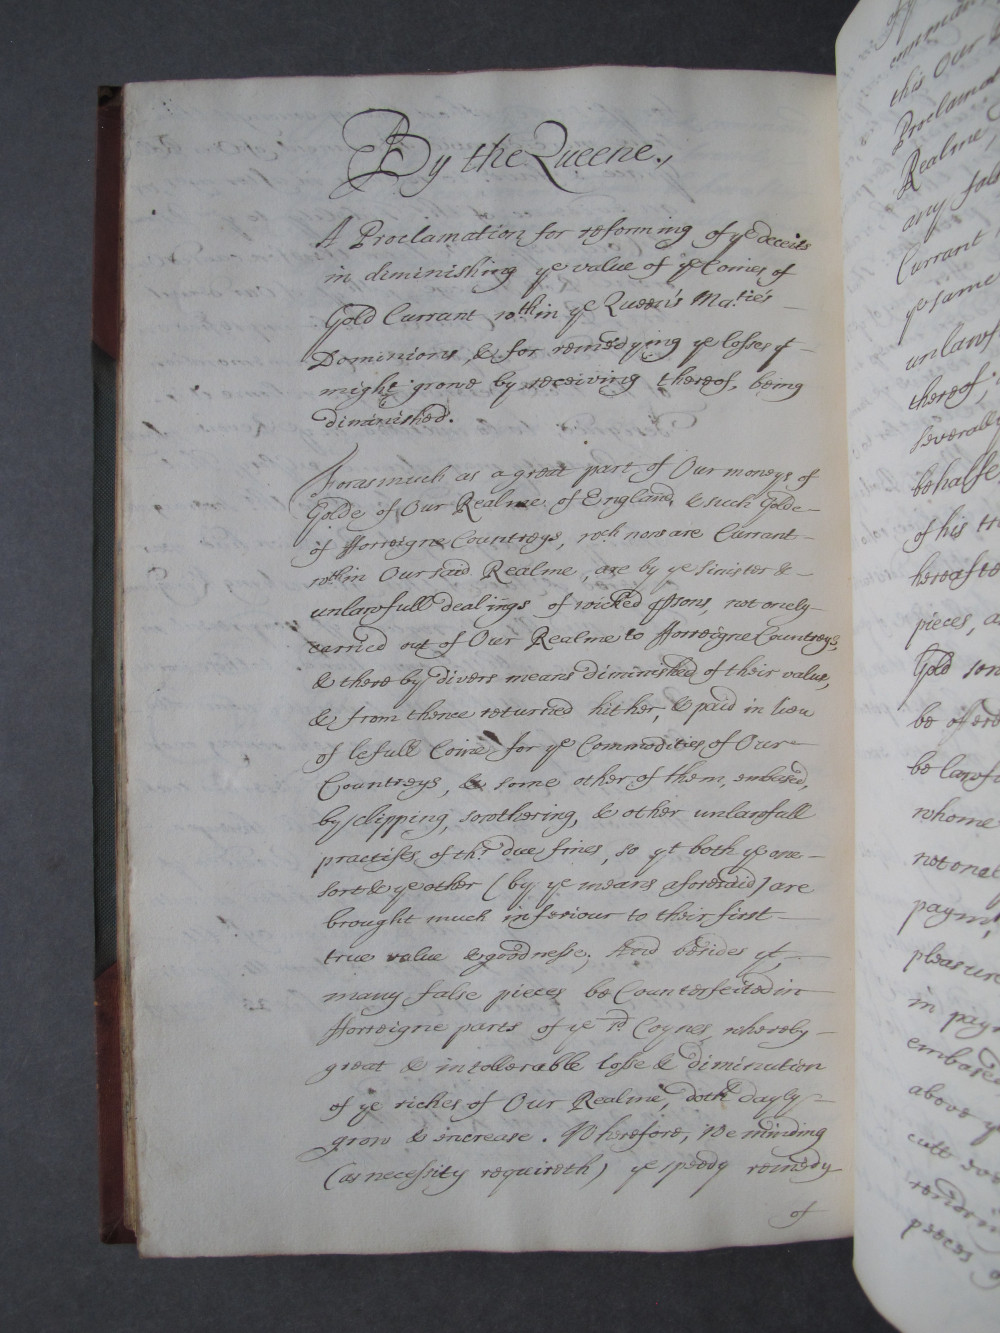 By the Queene.,
A Proclamation for reforming of ye deceits
in diminishing ye value of ye Coines of
Gold Currant wthin ye Queen's Maties
Dominions, & for remedying ye losses yt
might grone by receiving thereof, being
diminished.
Forasmuch as a great part of Our moneys of
Golde of Our Realme of England, & such Golde
of fforreigne Countreys, wch now are Currant
wthin Our said Realme, are by ye sinister &
unlawfull dealings of wicked psons, not onely
carried out of Our Realme to fforreigne Countreys,
& there by divers means diminished of their value,
& from thence returned hither, & paid in lieu
of lefull Coine, for ye Commodities of Our
Countreys, & some other of them, embased,
by clipping, sowthering, & other unlawfull
practises, of thr due fines, so yt both ye one
sort & ye other (by ye means aforesaid) are
brought much inferiour to their first
true value & goodnesse; And besides yt,
many false pieces be Counterfeited in
fforreigne parts of ye sd. Coynes, whereby
great & intollerable losse & diminution
of ye riches of Our Realme, doth dayly
grow & encrease. Wherefore, We minding
(as necessity requireth) ye speedy remedy
of
this Our
Realme,
any fals
Currant
ye same
unlawf
thereof,
severally
behalfe
of his
hereafte
pieces, a
Gold
be
be lawfu
whome
not onel
paymt,
pleasure
in pay
embased
above y
cutt
pieces